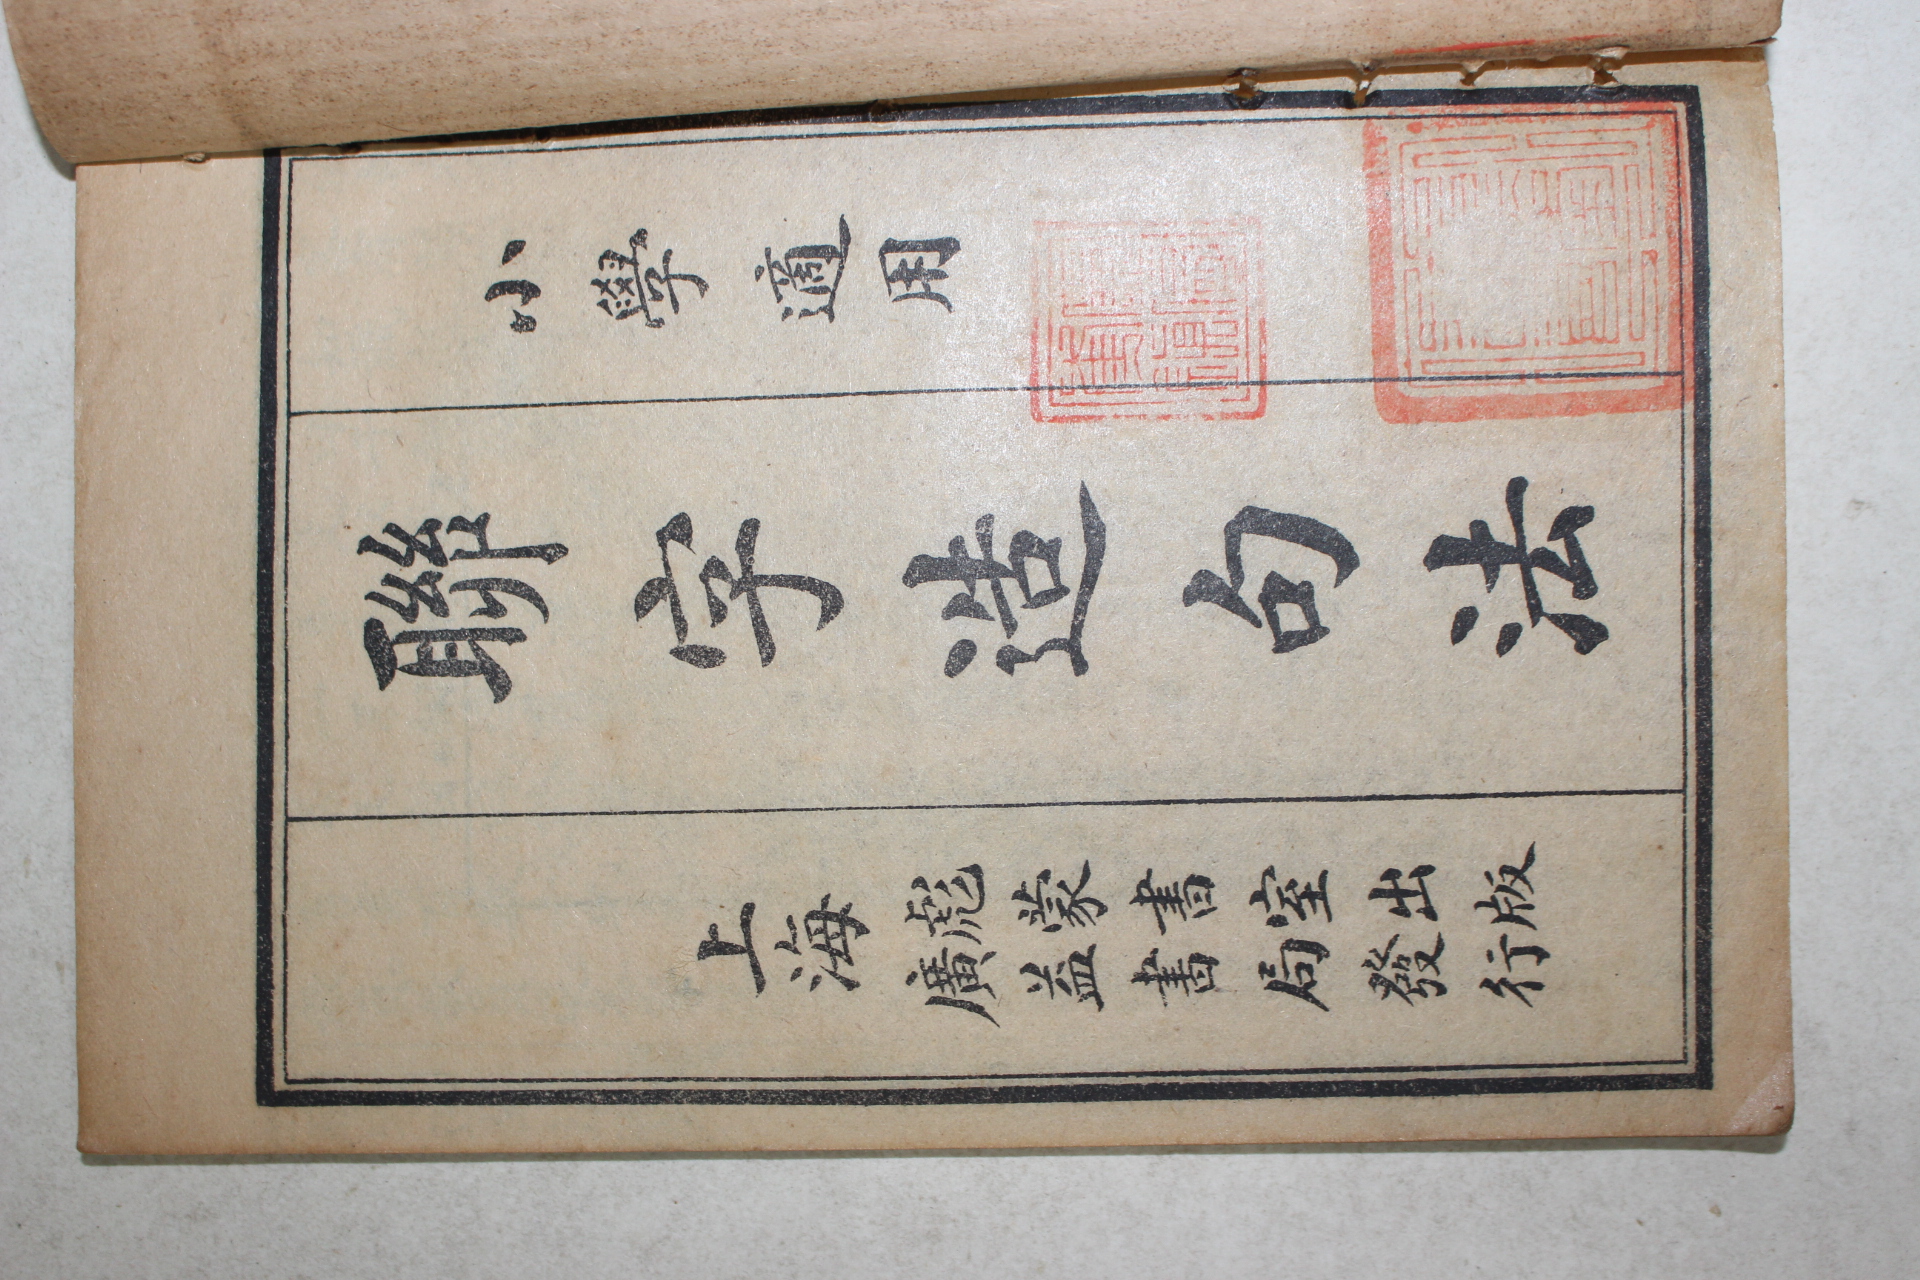 小學適用
聯字造句法
上海
彪蒙書室出版
廣益書局發行